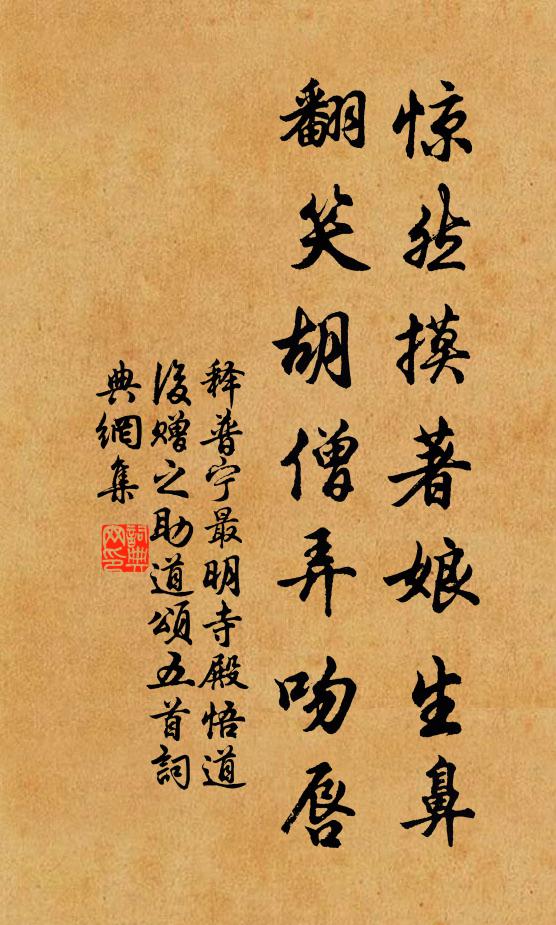 惊然摸著娘生鼻
翻笑胡僧弄吻唇
释普宁最明寺殿悟道
后赠之助道颂五首词
典网集
詞典
网印